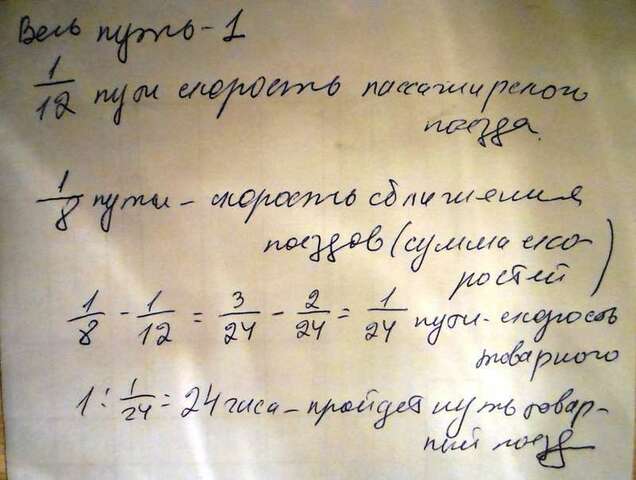 Весь путь - 1
1/12 пути скорость пассажирского
поезда.
1/8 пути - скорость сближения
поездов (сумма ско-
ростей)
1/8 - 1/12 = 3/24 - 2/24 = 1/24 пути - скорость
товарного
1 : 1/24 = 24 часа - пройдет путь товар-
ный поезд